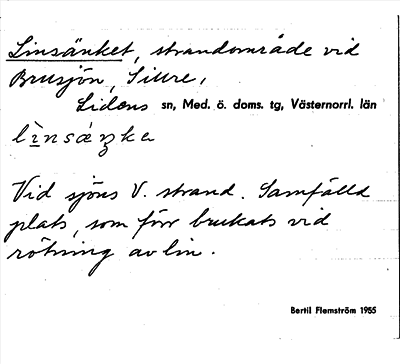 Linsänket, strandområde vid
Brusjön, Sillre,
Lidens sn, Med. ö. doms. tg, Västernorrl. län
Vid sjöns V. strand. Samfälld
plats, som förr brukats vid
rötning av lin.
Bertil Flemström 1955